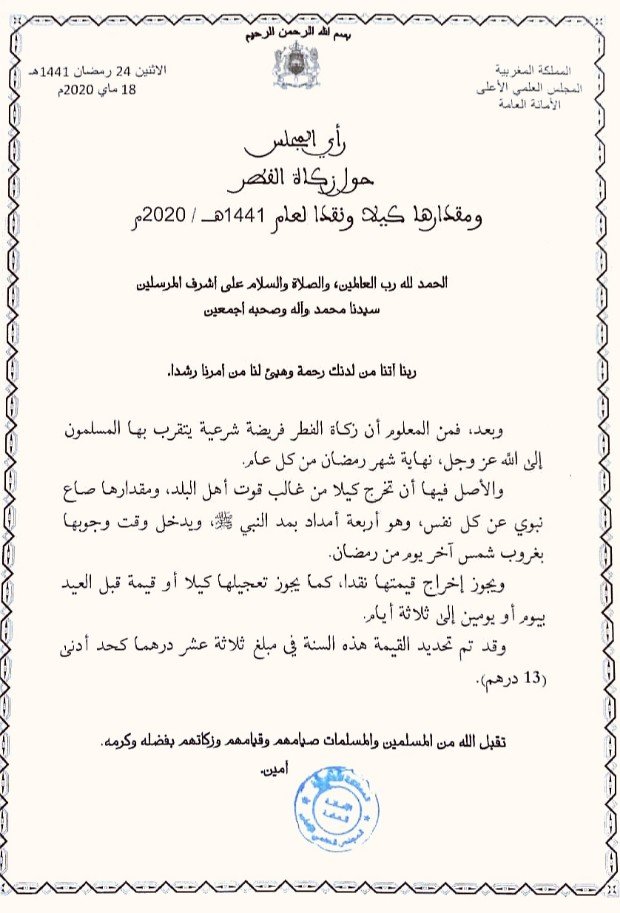 بسم الله الرحمن الرحيم
المملكة المغربية
المجلس العلمي الأعلى
الأمانة العامة
الاثنين 24 رمضان 1441هـ
18 ماي 2020م
رأي المجلس
حول زكاة الفطر
ومقدارها كيلا ونقدا لعام 1441هـ / 2020م
الحمد لله رب العالمين، والصلاة والسلام على أشرف المرسلين
سيدنا محمد وآله وصحبه أجمعين
ربنا آتنا من لدنك رحمة وهيئ لنا من أمرنا رشدا.
وبعد، فمن المعلوم أن زكاة الفطر فريضة شرعية يتقرب بها المسلمون
إلى الله عز وجل، نهاية شهر رمضان من كل عام.
والأصل فيها أن تخرج كيلا من غالب قوت أهل البلد، ومقدارها صاع
نبوي عن كل نفس، وهو أربعة أمداد بمد النبي ﷺ، ويدخل وقت وجوبها
بغروب شمس آخر يوم من رمضان.
ويجوز إخراج قيمتها نقدا، كما يجوز تعجيلها كيلا أو قيمة قبل العيد
بيوم أو يومين إلى ثلاثة أيام.
وقد تم تحديد القيمة هذه السنة في مبلغ ثلاثة عشر درهما كحد أدنى
(13 درهم).
تقبل الله من المسلمين والمسلمات صيامهم وقيامهم وزكاتهم بفضله وكرمه.
أمين.
المملكة المغربية
الأمانة
العامة
المجلس العلمي الأعلى